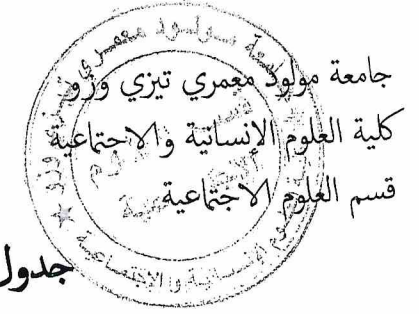 جامعة مولود معمري تيزي وزو
كلية العلوم الإنسانية والاجتماعية
قسم العلوم الاجتماعية
جدول